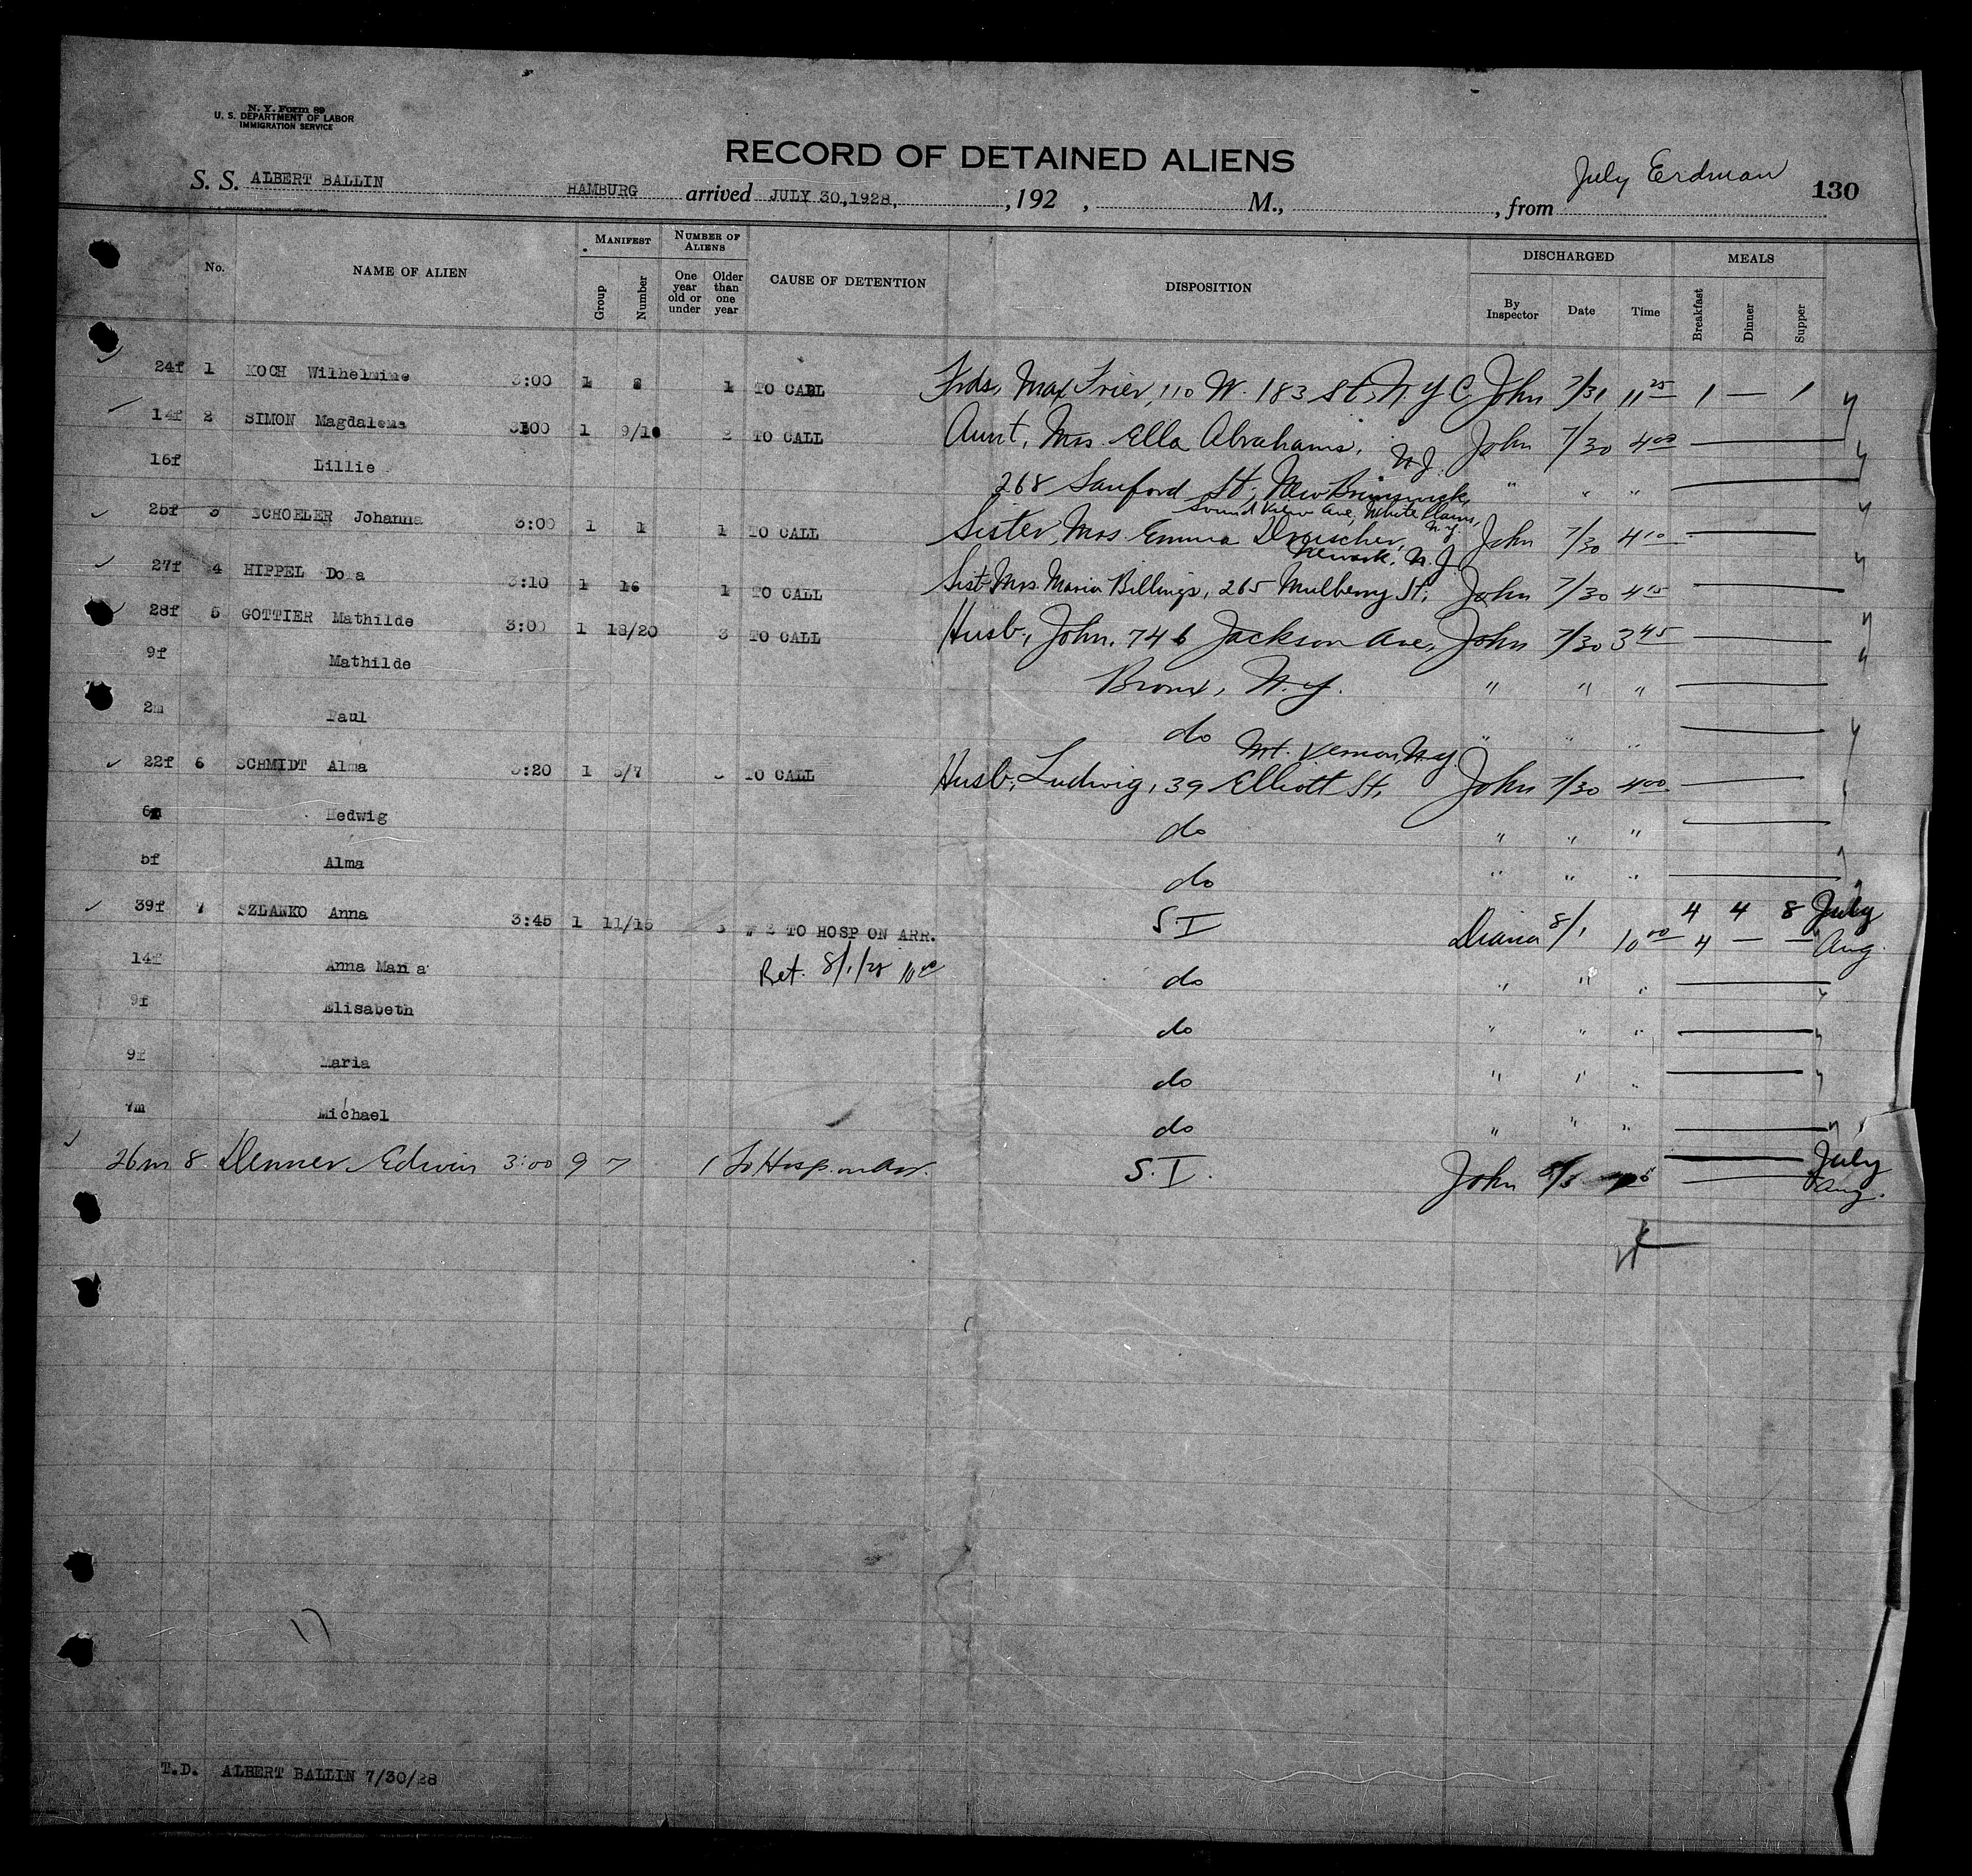 N. Y. Form 89
U. S. DEPARTMENT OF LABOR
IMMIGRATION SERVICE
RECORD OF DETAINED ALIENS
S. S. ALBERT BALLIN HAMBURG arrived JULY 30,1928, ,192 , M., , from July Erdman 130
No. NAME OF ALIEN MANIFEST Group Number NUMBER OF ALIENS One year old or under Older than one year CAUSE OF DETENTION DISPOSITION DISCHARGED By Inspector Date Time MEALS Breakfast Dinner Supper
24f 1 KOCH Wilhelmine 3:00 1 1 TO CALL Frds, Max Trier, 110 W. 183 St, N.Y.C. John 7/31 11 25 1 — 1
14f 2 SIMON Magdalena 3:00 1 9/10 2 TO CALL Aunt, Mrs Ella Abrahams, John 7/30 4 00
16f Lillie 268 Sanford St, New Brunswick, N.J. " " "
25f 3 SCHOELER Johanna 3:00 1 1 1 TO CALL Sister, Mrs. Emma Sound View Ave, White Plains, N.Y. John 7/30 4 10
27f 4 HIPPEL Do a 3:10 1 16 1 TO CALL Sist Mrs. Maria Billings, 265 Mulberry St, Newark, N.J. John 7/30 4 15
28f 5 GOTTIER Mathilde 3:00 1 18/20 3 TO CALL Husb, John, 746 Jackson Ave, John 7/30 3 45
9f Mathilde Bronx, N.Y. " " "
2m Paul do " " "
22f 6 SCHMIDT Alma 3:20 1 5/7 3 TO CALL Husb, Ludwig, 39 Elliott St, Mt. Vernon, N.Y. John 7/30 4 00
Hedwig do " " "
5f Alma do " " "
39f 7 SZLANKO Anna 3:45 1 11/15 5 # 2 TO HOSP ON ARR. S.I Diana 8/1 10 00 4 4 8 July
4 — — Aug.
14f Anna Maria Ret. 8/1/28 do " " "
9f Elisabeth do " " "
9f Maria do " " "
7m Michael do " " "
26m 8 Denner Edwin 3:00 9 7 1 To Hosp. on Arr. S.I. John July
Aug.
T.D. ALBERT BALLIN 7/30/28